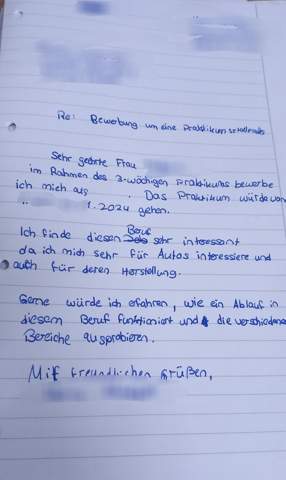 Re: Bewerbung um eine Praktikumsstelle
Sehr geehrte Frau
im Rahmen des 3-wöchigen Praktikums bewerbe
ich mich als . Das Praktikum würde von
1.2024 gehen.
Ich finde diesen Beruf sehr interessant
da ich mich sehr für Autos interessiere und
auch für deren Herstellung.
Gerne würde ich erfahren, wie ein Ablauf in
diesem Beruf funktioniert und die verschiedene
Bereiche ausprobieren.
Mit freundlichen Grüßen,